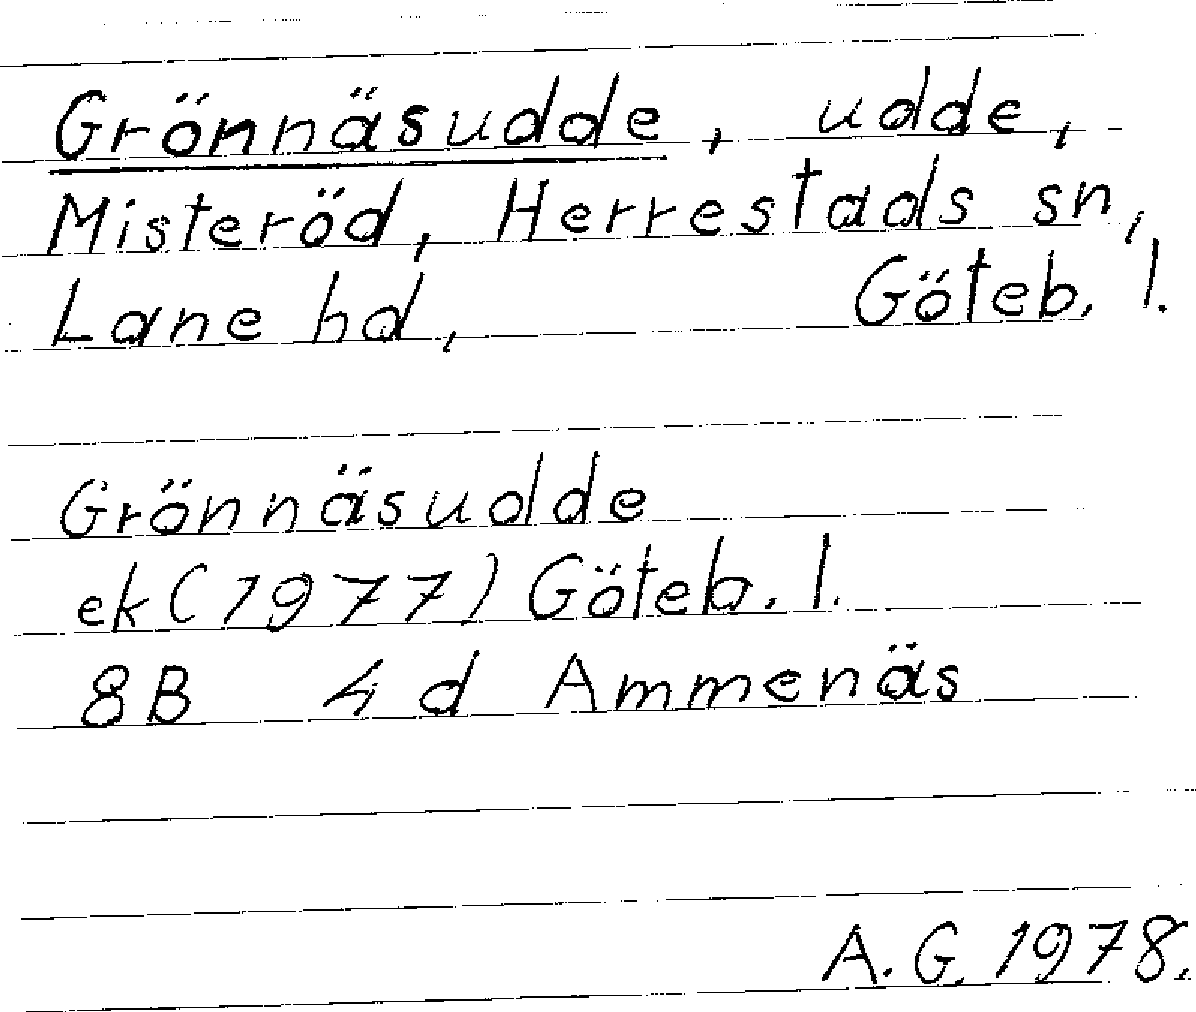 Grönnäsudde, udde,
Misteröd, Herrestads sn,
Lane hd, Göteb. l.
Grönnäsudde
ek (1977) Göteb. l.
8B 4d Ammenäs
A.G. 1978.